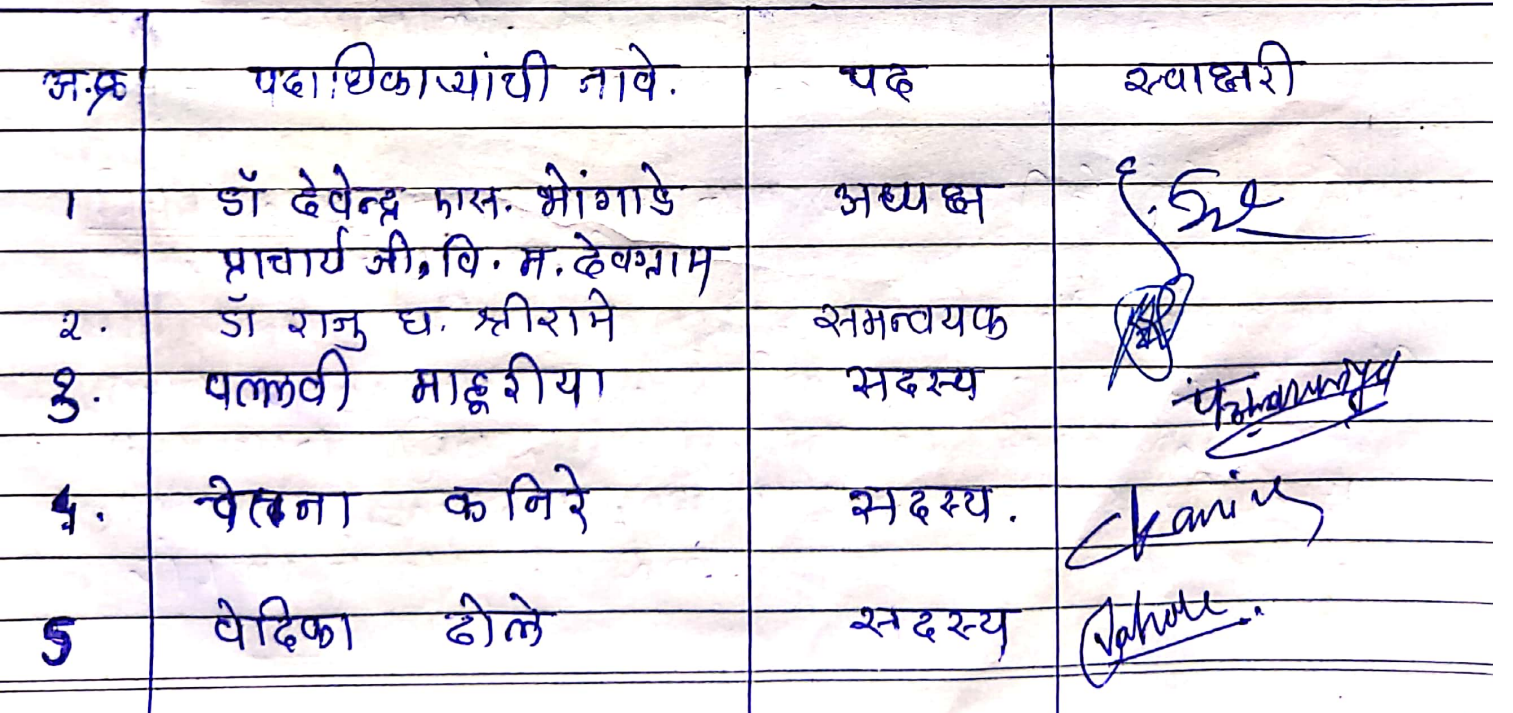 अ.क्र पदाधिकाऱ्यांची नावे. पद स्वाक्षरी
1 डॉ देवेन्द्र एस. भोंगाडे अध्यक्ष
प्राचार्य जी. वि. म. देवग्राम
२. डॉ राजु घ. श्रीरामे समन्वयक
3. पल्लवी माहूरीया सदस्य
4. चेतना कनिरे सदस्य.
5 वेदिका ढोले सदस्य